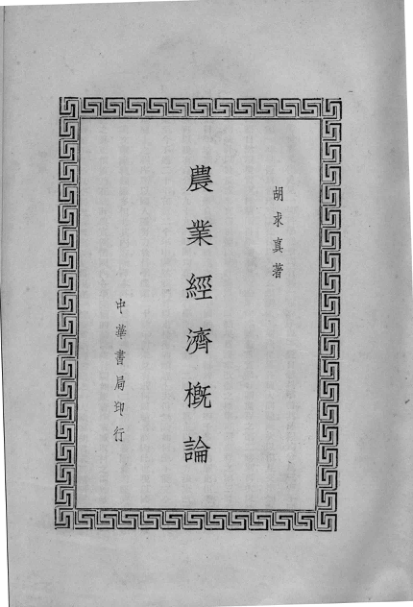 胡求真著
農業經濟概論
中華書局印行